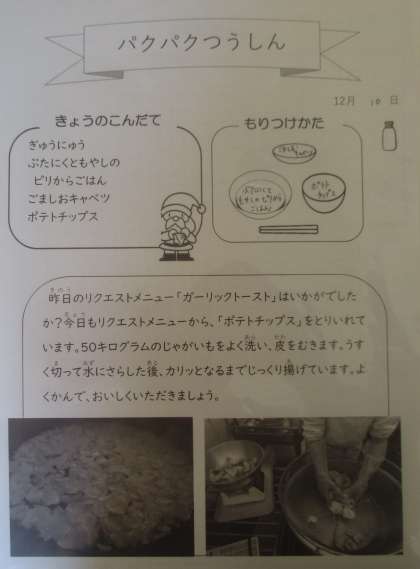 パクパクつうしん
12月 10 日
きょうのこんだて
ぎゅうにゅう
ぶたにくともやしの
ピリからごはん
ごましおキャベツ
ポテトチップス
もりつけかた
ごましお
キャベツ
ぶたにくと
もやしのピリから
ごはん
ポテト
チップス
昨日のリクエストメニュー「ガーリックトースト」はいかがでした
か?今日もリクエストメニューから、「ポテトチップス」をとりいれて
います。50キログラムのじゃがいもをよく洗い、皮をむきます。うす
く切って水にさらした後、カリッとなるまでじっくり揚げています。よ
くかんで、おいしくいただきましょう。